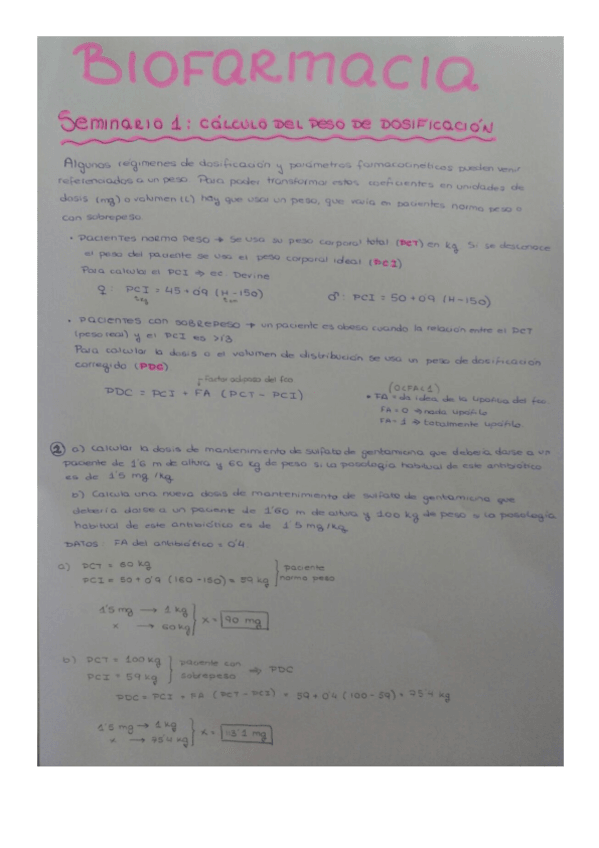 BIOFARMACIA
Seminario 1: Cálculo del peso de dosificación
Algunos regímenes de dosificación y parámetros farmacocinéticos pueden venir
referenciados a un peso. Para poder transformar estos coeficientes en unidades de
dosis (mg) o volumen (L) hay que usar un peso, que varía en pacientes normo peso o
con sobrepeso.
• Pacientes normo peso → Se usa su peso corporal total (PCT) en kg. Si se desconoce
el peso del paciente se usa el peso corporal ideal (PCI)
Para calcular el PCI → ec. Devine
♀: PCI = 45 + 0'9 (H - 150) ♂: PCI = 50 + 0'9 (H - 150)
• Pacientes con sobrepeso → un paciente es obeso cuando la relación entre el PCT
(peso real) y el PCI es >1'3
Para calcular la dosis o el volumen de distribución se usa un peso de dosificación
corregido (PDC)
Factor adiposo del fco
PDC = PCI + FA (PCT - PCI)
(0≤FA≤1)
• FA = da idea de la lipofilia del fco.
FA = 0 → nada lipófilo
FA = 1 → totalmente lipófilo
2 a) Calcular la dosis de mantenimiento de sulfato de gentamicina que debería darse a un
paciente de 1'6 m de altura y 60 kg de peso si la posología habitual de este antibiótico
es de 1'5 mg/kg
b) Calcula una nueva dosis de mantenimiento de sulfato de gentamicina que
debería darse a un paciente de 1'60 m de altura y 100 kg de peso si la posología
habitual de este antibiótico es de 1'5 mg/kg
DATOS: FA del antibiótico = 0'4
a) PCT = 60 kg
PCI = 50 + 0'9 (160 - 150) = 59 kg
paciente
normo peso
1'5 mg → 1 kg
x → 60 kg
x = 90 mg
b) PCT = 100 kg
PCI = 59 kg
paciente con
sobrepeso
⇒ PDC
PDC = PCI + FA (PCT - PCI) = 59 + 0'4 (100 - 59) = 75'4 kg
1'5 mg → 1 kg
x → 75'4 kg
x = 113'1 mg